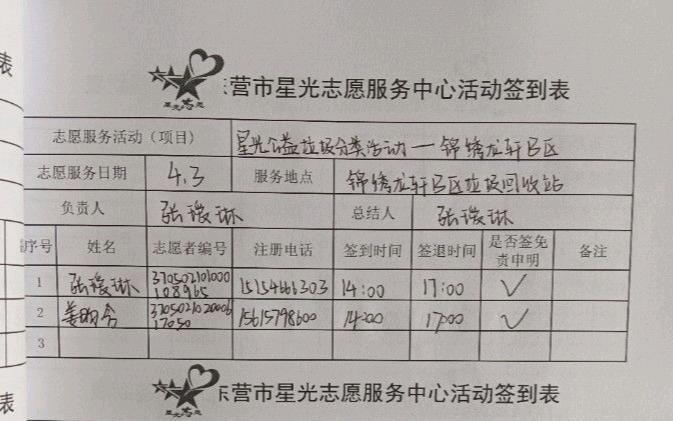 表
东营市星光志愿服务中心活动签到表
星光志愿
志愿服务活动（项目） 星光公益垃圾分类活动一锦绣龙轩B区
志愿服务日期 4.3 服务地点 锦绣龙轩B区垃圾回收站
负责人 张瑷琳 总结人 张瑷琳
序号 姓名 志愿者编号 注册电话 签到时间 签退时间 是否签免责申明 备注
1 张瑷琳 370502101000108965 15154666303 14:00 17:00 √
2 370502102000617050 15615798600 14:00 17:00 √
3
东营市星光志愿服务中心活动签到表
星光志愿
表